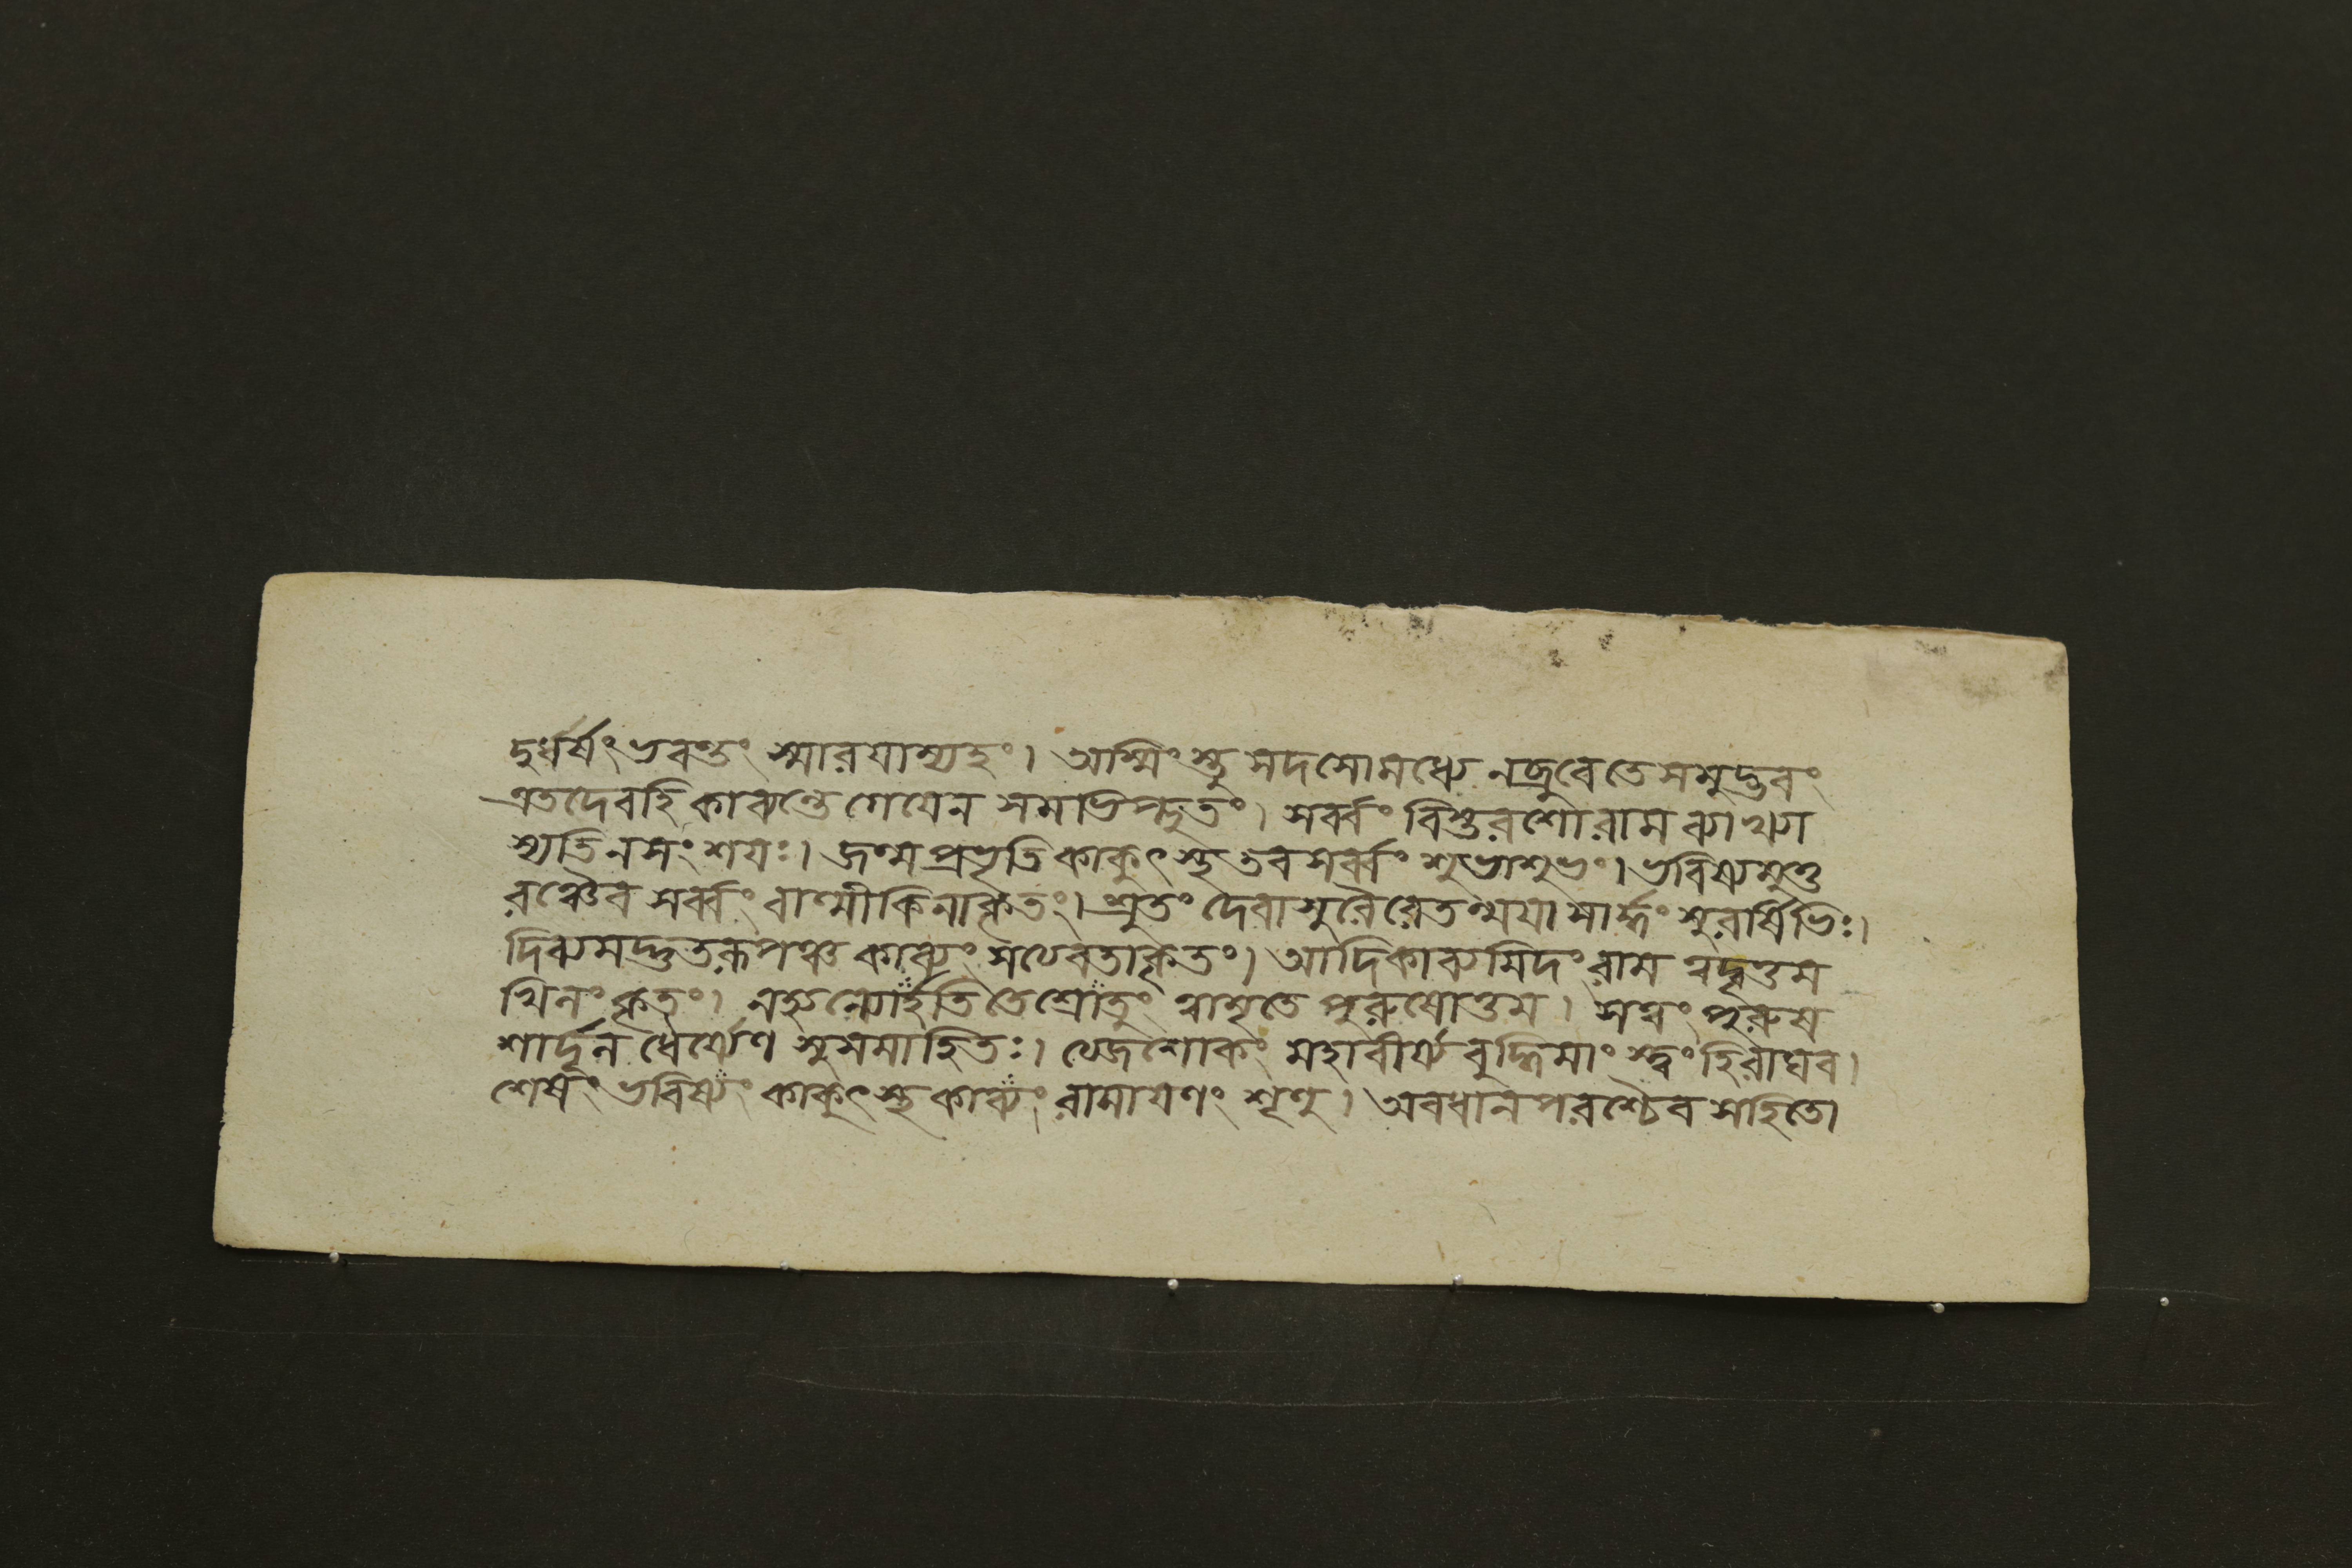 দুর্ধর্ষং ভবন্তং স্মারযাম্যহং। অস্মিংস্তু সদসোমধ্যে নব্রুবেতে সমুদ্ভবং
এতদেবহি কাব্যন্তে গেযেন সমভিপ্লুতং। সর্ব্বং বিস্তরশোরাম ব্যাখ্যা
স্যতিনসংশযঃ। জন্মপ্রভৃতি কাকুৎস্থ তবসর্ব্বং শুভাশুভং। ভবিষ্যমুত্ত
রঞ্চৈব সর্ব্বং বাল্মীকিনাকৃতং। শ্রুতং দেবাসুরৈরেতন্মযা সার্দ্ধং সুরর্ষিভিঃ।
দিব্যমদ্ভুতরূপঞ্চ কাব্যং সত্যবতাকৃতং। আদিকাব্যমিদং রাম ত্বদ্বৃত্তম
খিলং কৃতং। নহ্যন্যোর্হতি তেশ্রোতুং ত্বামৃতে পুরুষোত্তম। সত্বং পুরুষ
শার্দূল ধৈর্য্যেণ সুসমাহিতঃ। ত্যজশোকং মহাবীর্য্য বুদ্ধিমাংস্ত্বংহিরাঘব।
শেষং ভবিষ্যং কাকুৎস্থ কাব্যং রামাযণং শৃণু। অবধানপরশ্চৈব সহিতো